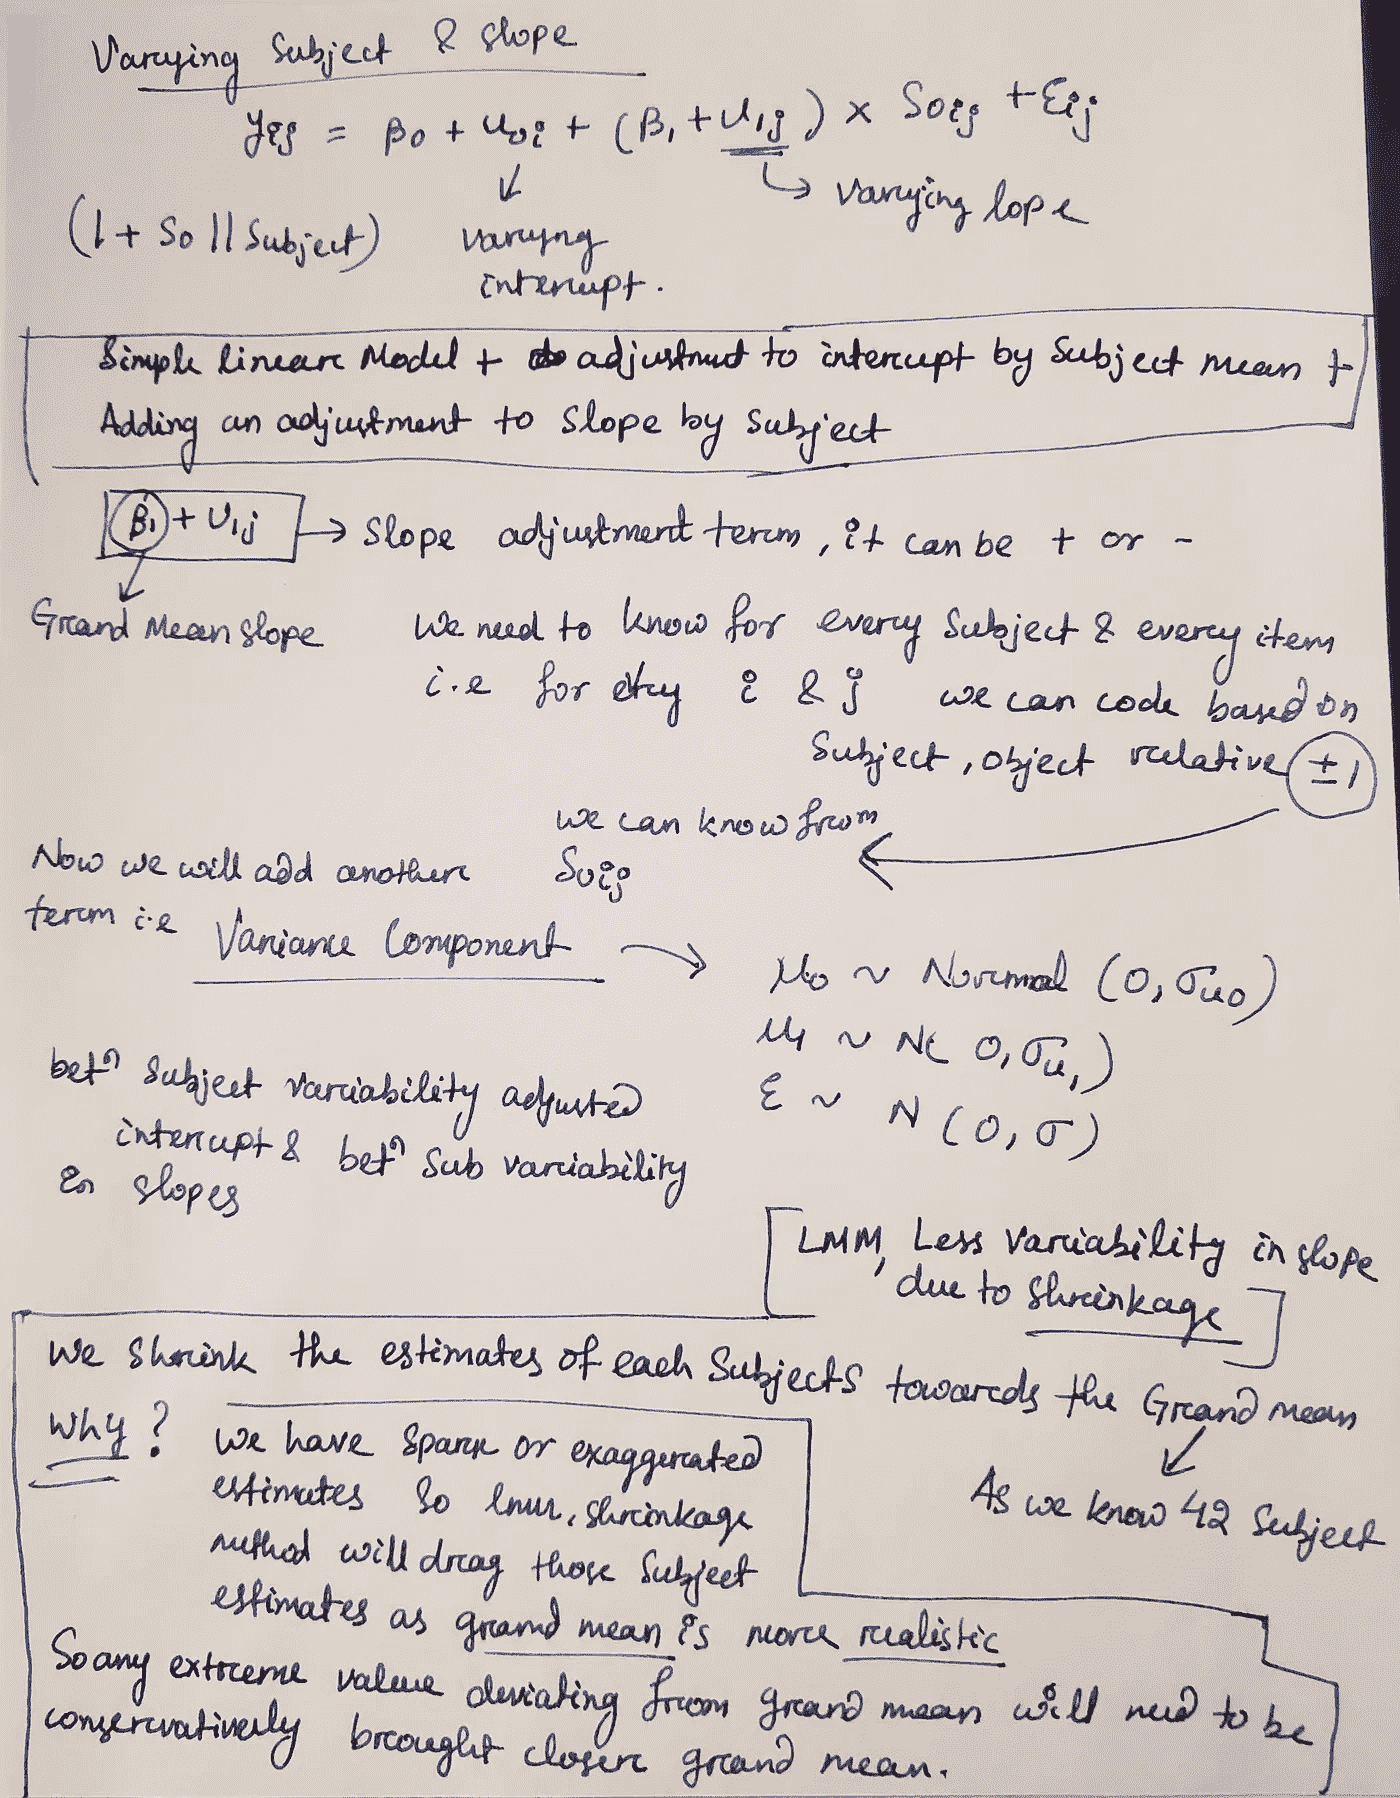 Varying Subject & slope
yij = β0 + u0i + (β1 + u1j) × Soij + εij
↳ varying lope
(1 + So || Subject) varying
intercept.
Simple linear Model + adjustment to intercept by Subject mean +
Adding an adjustment to Slope by Subject
β1 + U1j → Slope adjustment term, it can be + or -
Grand Mean slope We need to know for every Subject & every item
i.e for i & j we can code based on
Subject, object relative ±1
we can know from
Now we will add another Soij
term i.e Variance Component →
μ0 ~ Normal (0, σu0)
u1 ~ N( 0, σu1)
ε ~ N (0, σ)
betn Subject variability adjusted
intercept & betn Sub variability
in slopes
LMM, Less Variability in slope
due to Shrinkage
We Shrink the estimates of each Subjects towards the Grand mean
Why? we have Sparse or exaggerated
estimates So lmm, shrinkage
method will drag those Subject
estimates as grand mean is more realistic
As we know 42 Subject
So any extreme value deviating from grand mean will need to be
conservatively brought closer grand mean.